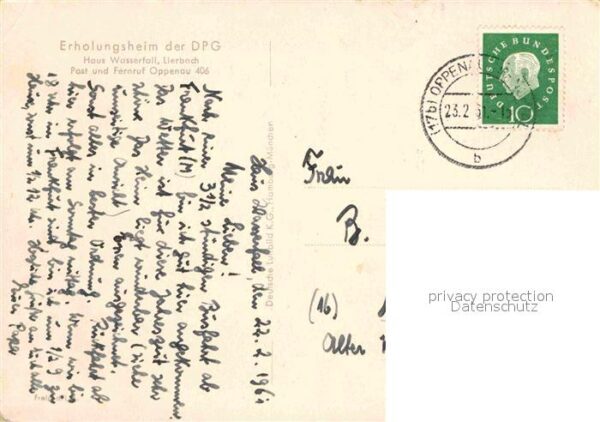 Erholungsheim der DPG
Haus Wasserfall, Lierbach
Post und Fernruf Oppenau 406
DEUTSCHE BUNDESPOST
10
(17b) OPPENAU
23.2.61
b
Haus Wasserfall, den 22.2.1961
Meine Lieben!
Nach einer 3 1/2 stündigen Busfahrt ab
Frankfurt (M) bin ich gut hier angekommen.
Das Wetter ist für diese Jahreszeit sehr
schön. Das Heim liegt wunderbar (siehe
umseitige Ansicht). Essen ausgezeichnet.
Sonst alles in bester Ordnung. Rückfahrt ab
hier erfolgt am Sonntag mittag. Wenn wir bis
18 Uhr in Frankfurt sind bin ich um 1/2 9 zu
Hause, sonst um 1/2 12 Uhr. Herzliche Grüße an Euch alle
Euer Papa
Deutsche Luftbild K.G., Hamburg-München
Frau
B.
(16)
Alter
privacy protection
Datenschutz